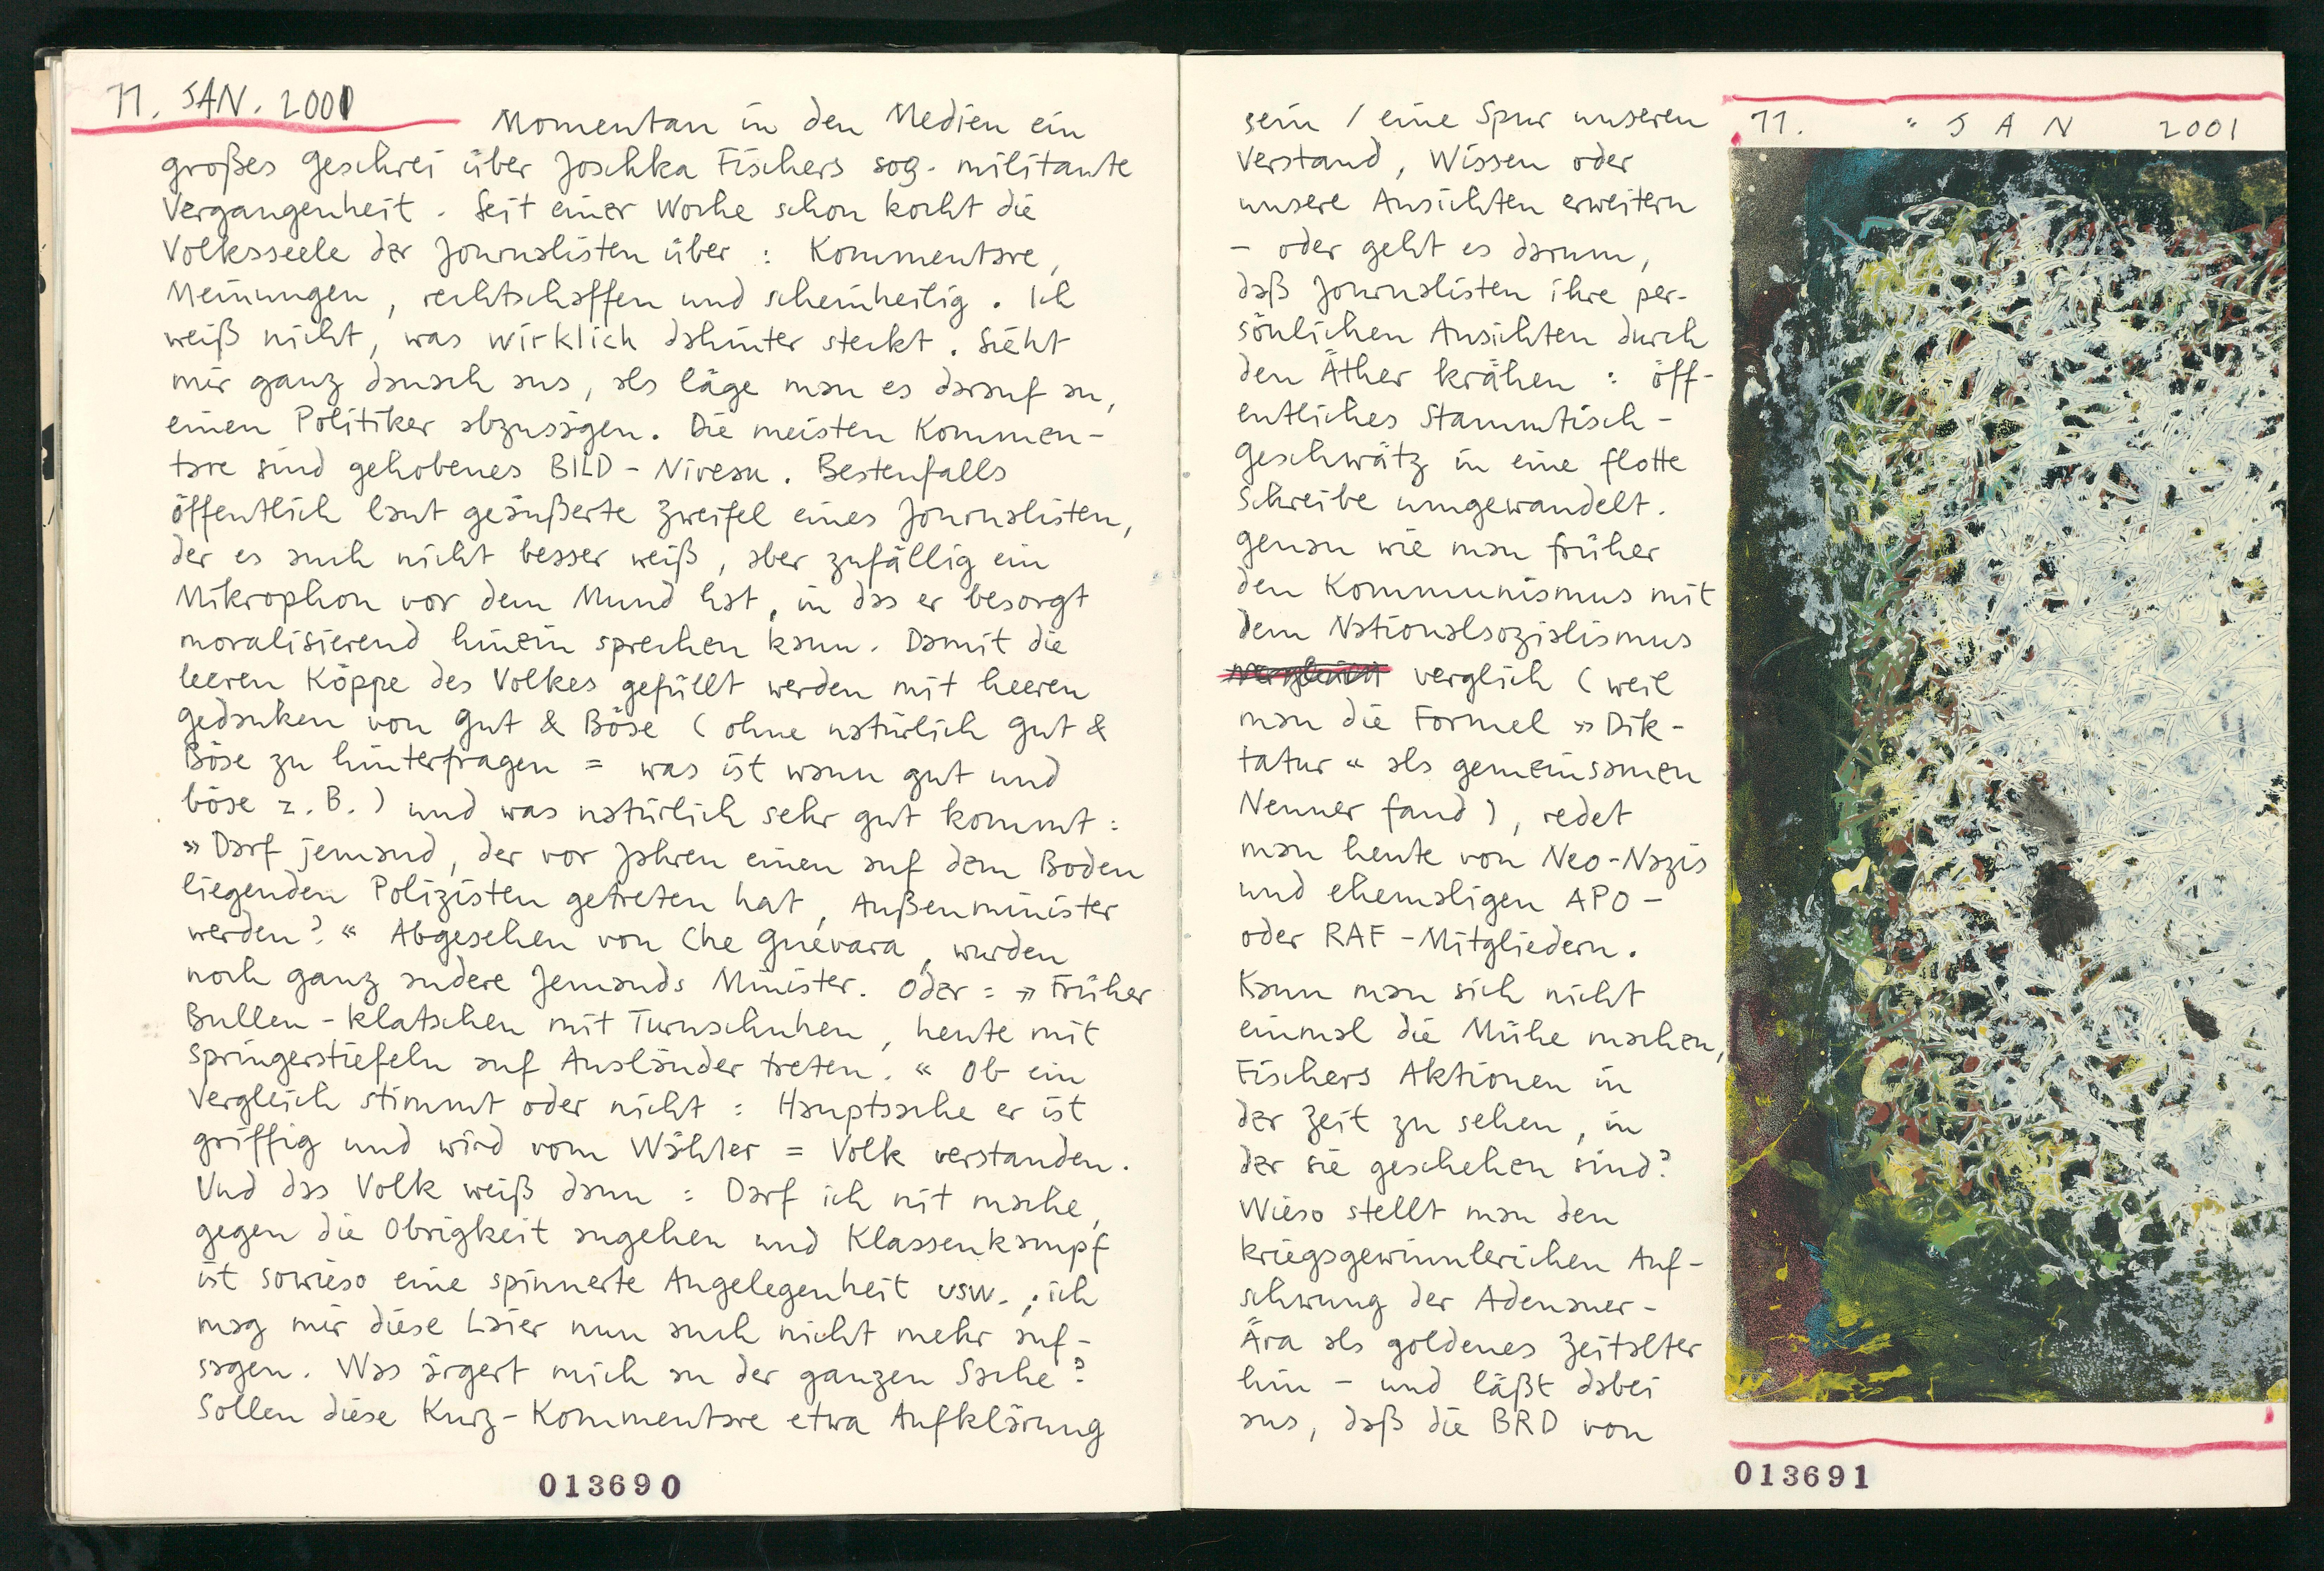 11. JAN. 2001
Momentan in den Medien ein
großes Geschrei über Joschka Fischers sog. militante
Vergangenheit. Seit einer Woche schon kocht die
Volksseele der Journalisten über: Kommentare,
Meinungen, rechtschaffen und scheinheilig. Ich
weiß nicht, was wirklich dahinter steckt. Sieht
mir ganz danach aus, als läge man es darauf an,
einen Politiker abzusägen. Die meisten Kommen-
tare sind gehobenes BILD-Niveau. Bestenfalls
öffentlich laut geäußerte Zweifel eines Journalisten,
der es auch nicht besser weiß, aber zufällig ein
Mikrophon vor dem Mund hat, in das er besorgt
moralisierend hinein sprechen kann. Damit die
leeren Köppe des Volkes gefüllt werden mit heeren
Gedanken von Gut & Böse (ohne natürlich Gut &
Böse zu hinterfragen = was ist wann gut und
böse z.B.) und was natürlich sehr gut kommt:
»Darf jemand, der vor Jahren einen auf dem Boden
liegenden Polizisten getreten hat, Außenminister
werden?« Abgesehen von Che Guevara, wurden
noch ganz andere Jemands Minister. Oder: »Früher
Bullen-klatschen mit Turnschuhen, heute mit
Springerstiefeln auf Ausländer treten.« Ob ein
Vergleich stimmt oder nicht: Hauptsache er ist
griffig und wird vom Wähler = Volk verstanden.
Und das Volk weiß dann: Darf ich nit mache,
gegen die Obrigkeit angehen und Klassenkampf
ist sowieso eine spinnerte Angelegenheit usw. ; ich
mag mir diese Laier nun auch nicht mehr auf-
sagen. Was ärgert mich an der ganzen Sache?
Sollen diese Kurz-Kommentare etwa Aufklärung
013690
sein / eine Spur unseren
Verstand, Wissen oder
unsere Ansichten erweitern
– oder geht es darum,
daß Journalisten ihre per-
sönlichen Ansichten durch
den Äther krähen: öff-
entliches Stammtisch-
Geschwätz in eine flotte
Schreibe umgewandelt.
Genau wie man früher
den Kommunismus mit
dem Nationalsozialismus
verglich (weil
man die Formel »Dik-
tatur« als gemeinsamen
Nenner fand), redet
man heute von Neo-Nazis
und ehemaligen APO-
oder RAF-Mitgliedern.
Kann man sich nicht
einmal die Mühe machen,
Fischers Aktionen in
der Zeit zu sehen, in
der sie geschehen sind?
Wieso stellt man den
kriegsgewinnlerichen Auf-
schwung der Adenauer-
Ära als goldenes Zeitalter
hin – und läßt dabei
aus, daß die BRD von
11. JAN 2001
013691